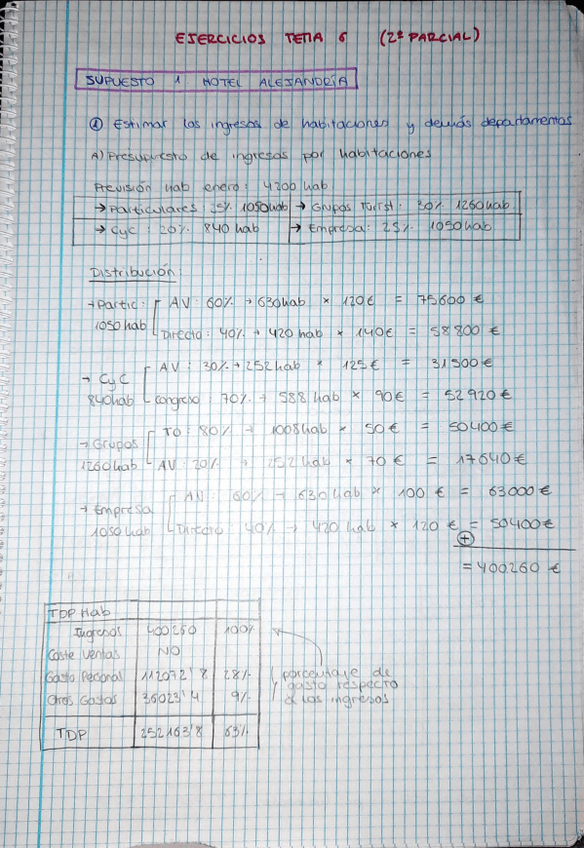 EJERCICIOS TEMA 6 (2º PARCIAL)
SUPUESTO 1 HOTEL ALEJANDRÍA
① Estimar los ingresos de habitaciones y demás departamentos
A) Presupuesto de ingresos por habitaciones
Previsión hab enero: 4200 hab
→ Particulares: 25% 1050hab → Grupos Turíst: 30% 1260hab
→ CyC: 20% 840 hab → Empresa: 25% 1050hab
Distribución:
→ Partic: AV: 60% → 630hab * 120€ = 75600 €
1050 hab Directo: 40% → 420 hab * 140€ = 58800 €
→ CyC AV: 30% → 252hab * 125€ = 31500 €
840hab congreso: 70% → 588 hab * 90€ = 52920 €
→ Grupos TO: 80% → 1008hab * 50€ = 50400€
1260hab AV: 20% → 252 hab * 70€ = 17640€
→ Empresa AV: 60% → 630hab * 100€ = 63000€
1050 hab Directo: 40% → 420 hab * 120€ = 50400€
+
= 400260 €
TDP Hab
Ingresos 400260 100%
Coste Ventas NO
Gasto Personal 112072'8 28%
Otros Gastos 36023'4 9%
TDP 252163'8 63%
porcentaje de
gasto respecto
a los ingresos